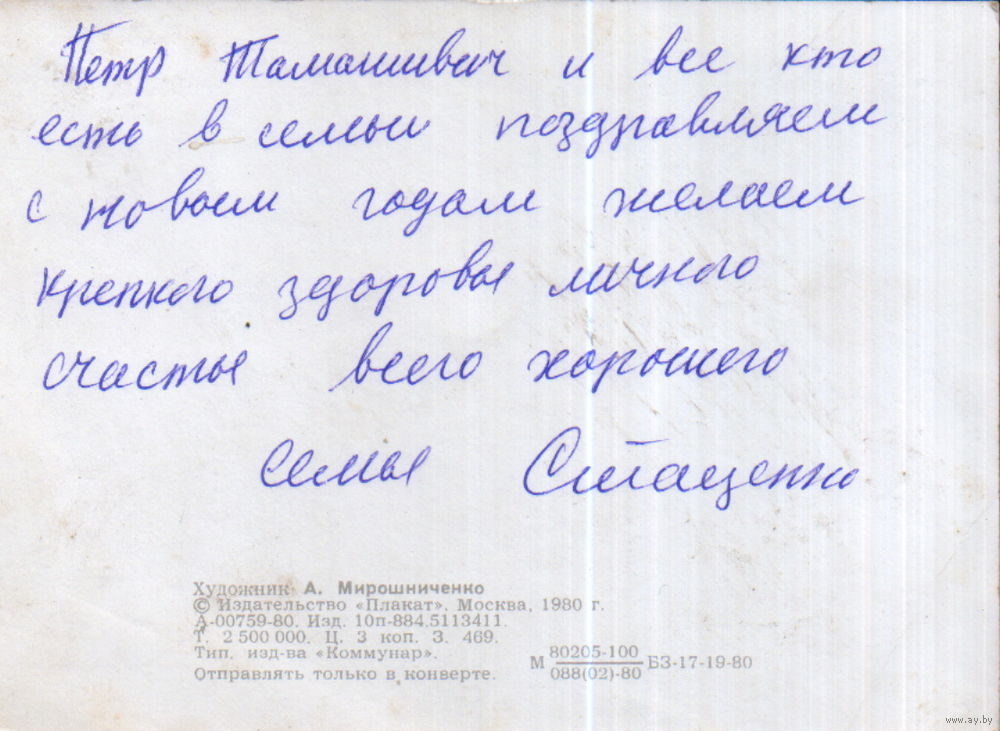 Петр Тамашивич и все кто
есть в семьи поздравляем
с новым годам желаем
крепкого здоровья личного
счастья всего хорошего
семья Стаценко
Художник А. Мирошниченко
© Издательство «Плакат». Москва, 1980 г.
А-00759-80. Изд. 10п-884.5113411.
Т. 2 500 000. Ц. 3 коп. З. 469.
Тип. изд-ва «Коммунар».
Отправлять только в конверте.
М 80205-100 БЗ-17-19-80
088(02)-80
www.ay.by